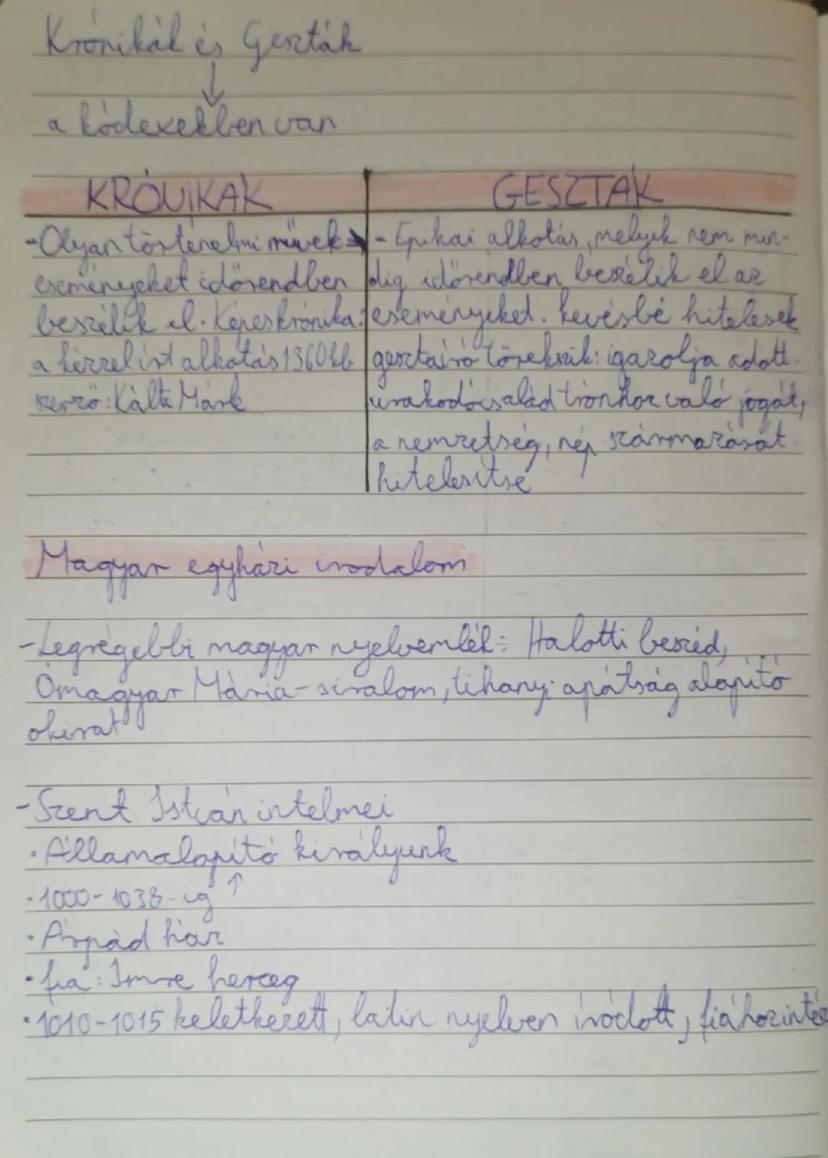 Krónikák és Geszták
↓
a kódexekben van
KRÓNIKÁK
-Olyan történelmi művek
eseményeket időrendben
beszélik el. Képeskrónika:
a kézzel írt alkotás 1360 kb
szerző: Kálti Márk
GESZTÁK
- Epikai alkotás, melyek nem min-
dig időrendben beszélik el az
eseményeket. kevésbé hitelesek
gesztaíró törekszik: igazolja adott
uralkodócsalád trónhoz való jogát,
a nemzetség, nép származását
hitelesítse
Magyar egyházi irodalom
-Legrégebbi magyar nyelvemlék: Halotti beszéd,
Ómagyar Mária-siralom, tihanyi apátság alapító
okirat
-Szent István intelmei
•Államalapító királyunk
•1000-1038-ig ↑
•Árpád ház
•fia: Imre herceg
•1010-1015 keletkezett, latin nyelven íródott, fiához intéz